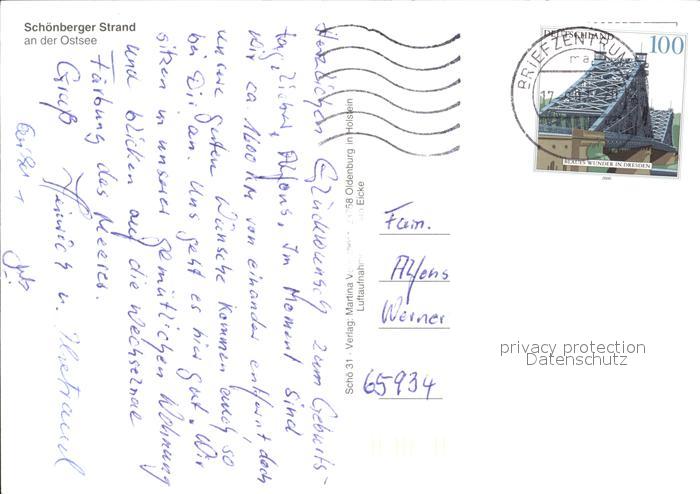 Schönberger Strand
an der Ostsee
Herzlichen Glückwunsch zum Geburts-
tag, lieber Alfons. Im Moment sind
wir ca 1400 km von einander entfernt doch
unsere guten Wünsche kommen auch so
bei Dir an. Uns geht es hier gut. Wir
sitzen in unserer gemütlichen Wohnung
und blicken auf die wechselnde
Färbung des Meeres.
Gruß Heinrich u.
Schö 31 · Verlag: Martina Oldenburg in Holstein
Luftaufnahme Eicke
BRIEFZENTRUM
17
DEUTSCHLAND
100
BLAUES WUNDER IN DRESDEN
2000
Fam.
Alfons
Werner
65934
privacy protection
Datenschutz